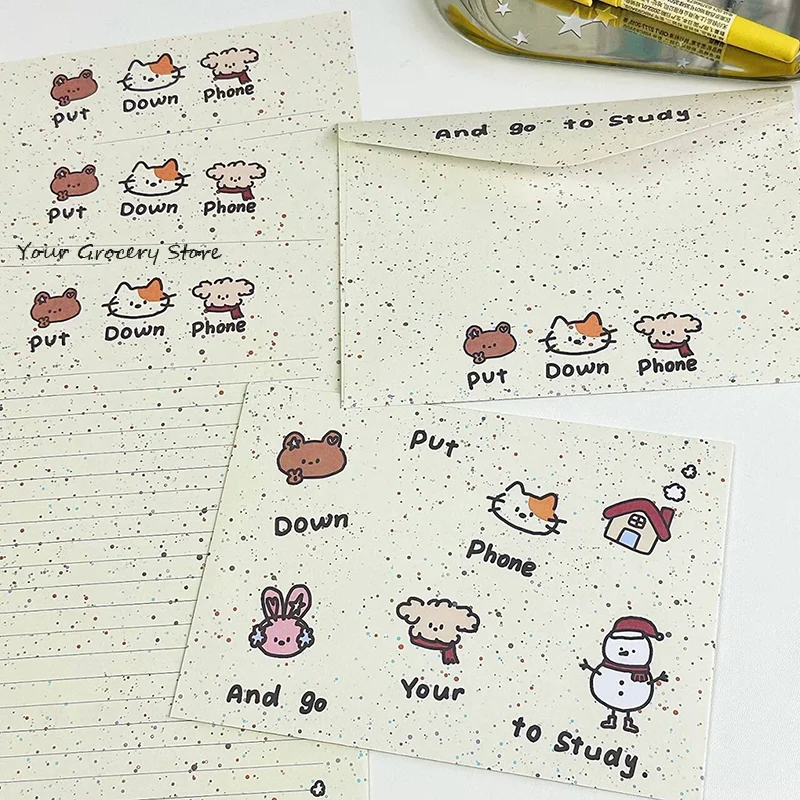 Put Down Phone
Put Down Phone
Your Grocery Store
Put Down Phone
And go to Study
Put Down Phone
Put
Down
Phone
And go
Your
to Study.